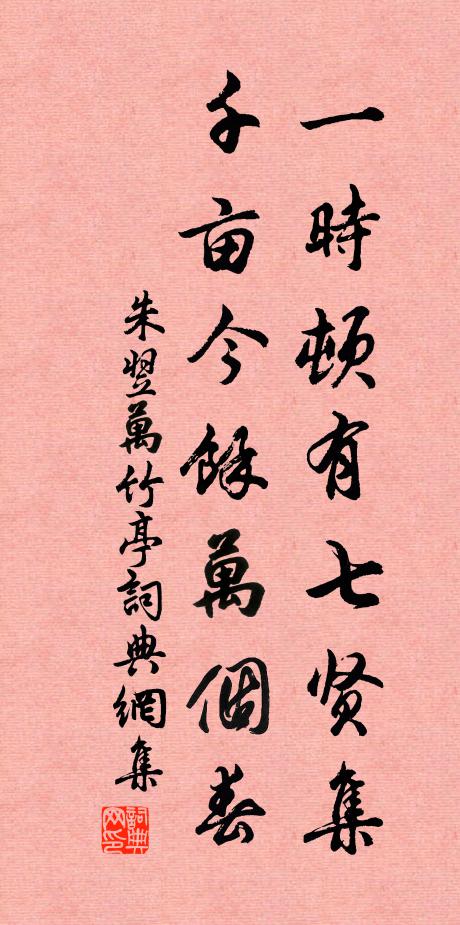 一時頓有七贤集
千亩今餘萬個春
朱翌萬竹亭詞典網集
詞典网印